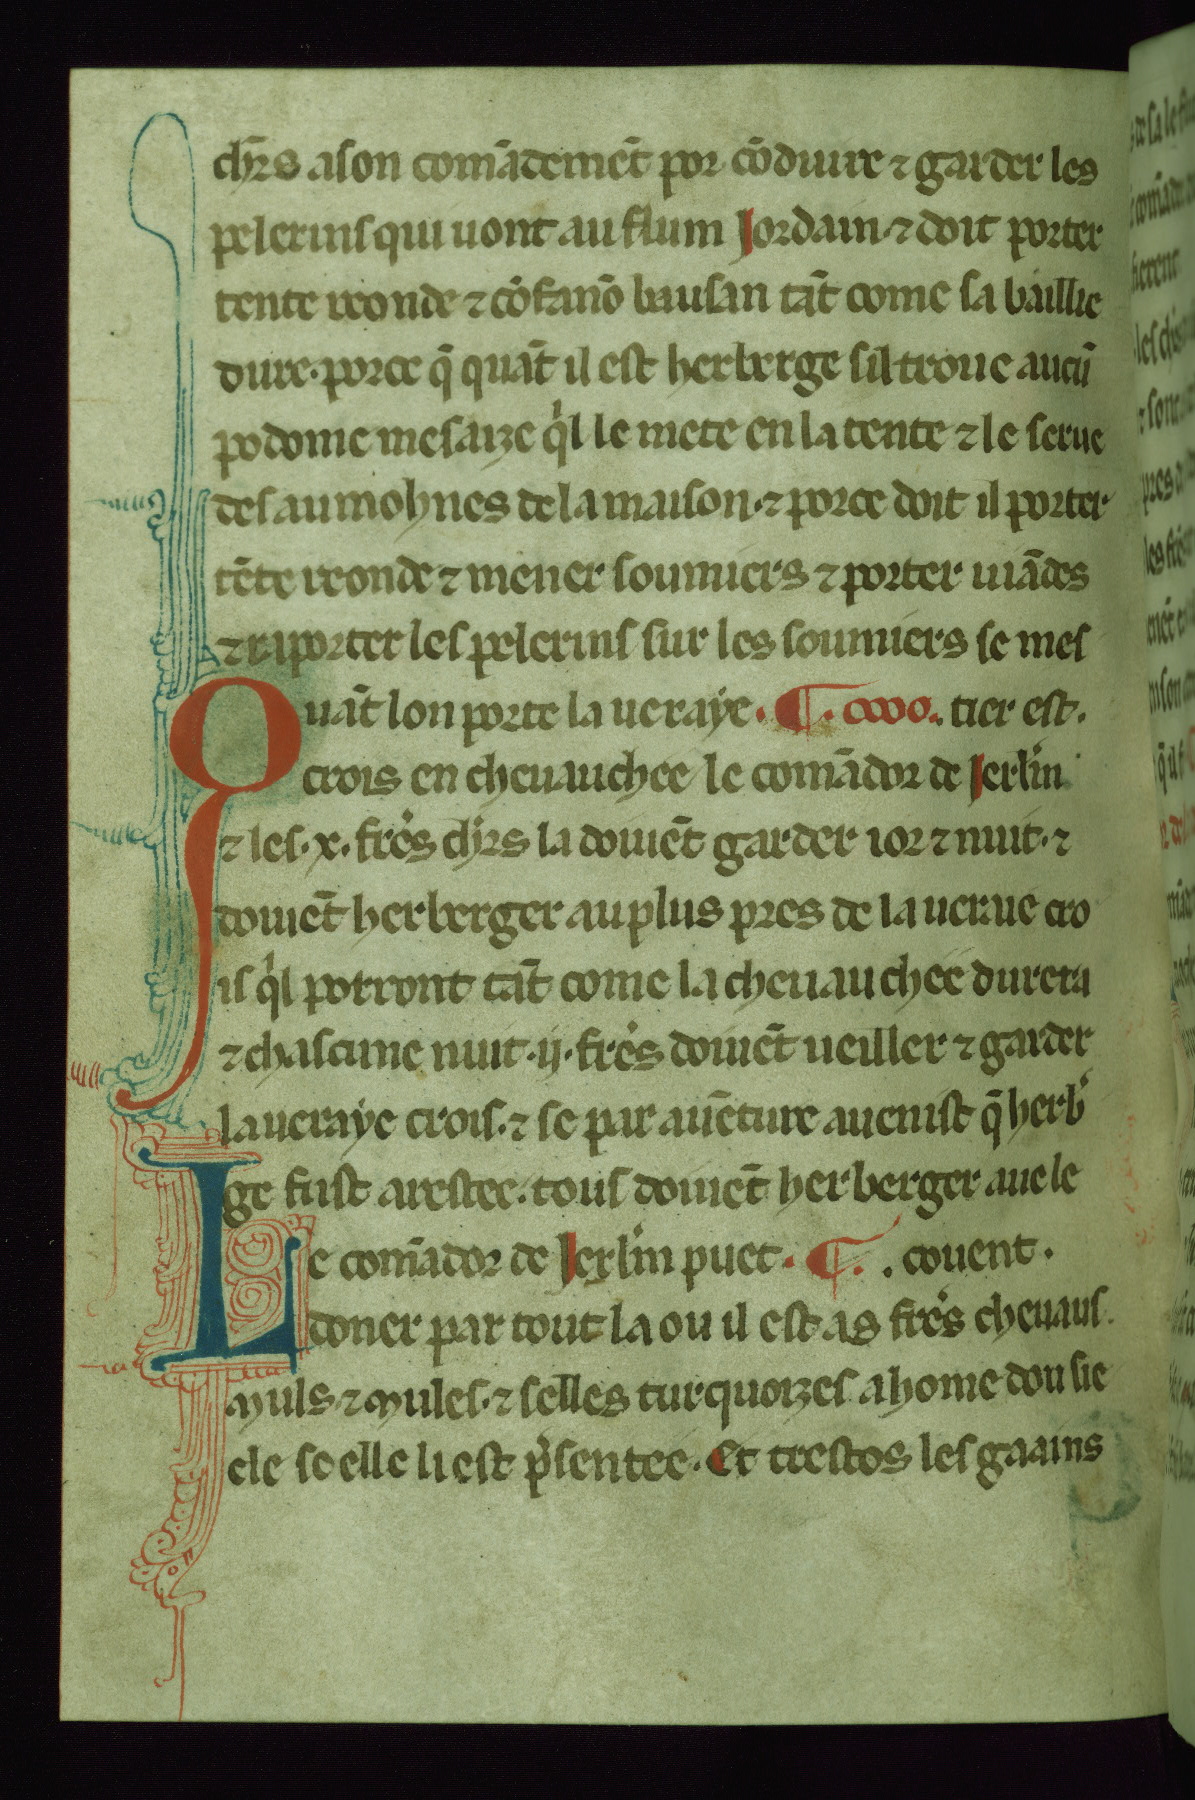 chr̄s a son comādemēt por cōduire ⁊ garder les
pelerins qui uont au flum Jordain · ⁊ doit porter
tente reonde ⁊ cōfanō bausan tāt come sa baillie
dure · porce q̄ quāt il est herberge sil troue aucū
podome mesaize qͥl le mete en la tente ⁊ le serue
des aumohnes de la maison · ⁊ porce doit il porter
tēte reonde ⁊ mener soumiers ⁊ porter uiādes
⁊ raporter les pelerins sur les soumiers se mes
Quāt lon porte la ueraye · ¶ · tier est .
crois en cheuauchee le comādor de Jerl'm
⁊ les · x · freˀs chr̄s la doiuēt garder ior ⁊ nuit · ⁊
doiuēt herberger au plus pres de la ueraie cro
is qͥl porront tāt come la cheuauchee durera
⁊ chascune nuit · ij · freˀs doiuēt ueiller ⁊ garder
la ueraye crois · ⁊ se par auēture auenist q̄ herbˀ
ge fust arestee · tous doiuēt herberger aue le
Le comādor de Jerl'm puet · ¶ · . couent .
doner par tout la ou il est as freˀs cheuaus .
muls · ⁊ mules · ⁊ selles turquoizes a home dou sie
cle se elle li est pˀsentee . Et trestos les gaains